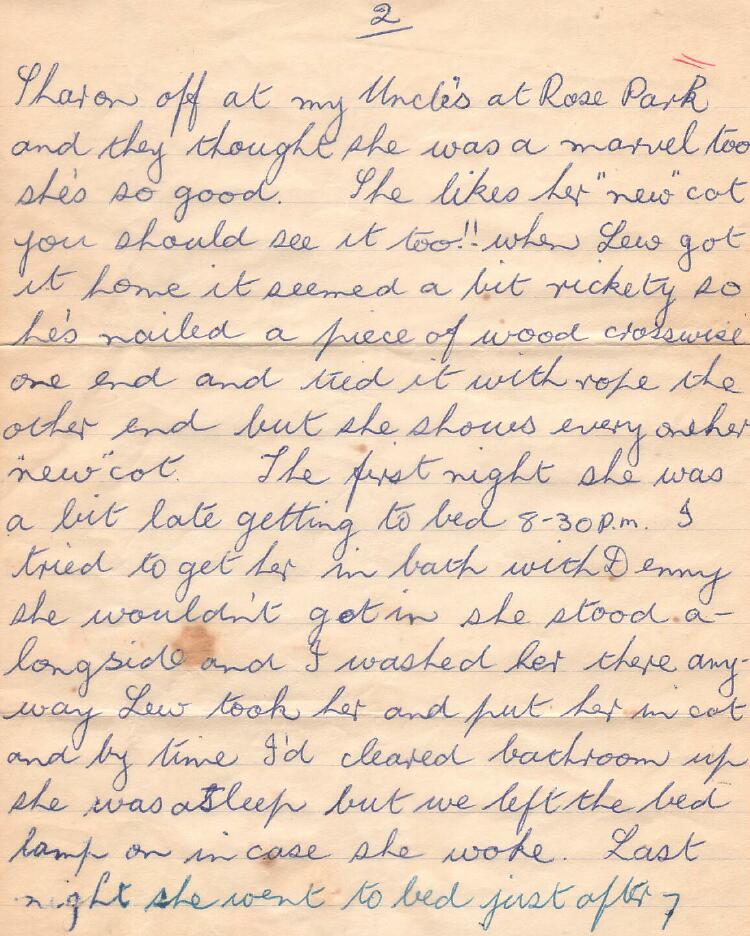 2
Sharon off at my Uncle's at Rose Park
and they thought she was a marvel too
she's so good. She likes her "new" cot
you should see it too!! when Lew got
it home it seemed a bit rickety so
he's nailed a piece of wood crosswise
one end and tied it with rope the
other end but she shows every one her
"new" cot. The first night she was
a bit late getting to bed 8-30 p.m. I
tried to get her in bath with Denny
she wouldn't get in she stood a-
longside and I washed her there any-
way Lew took her and put her in cot
and by time I'd cleared bathroom up
she was asleep but we left the bed
lamp on in case she woke. Last
night she went to bed just after 7